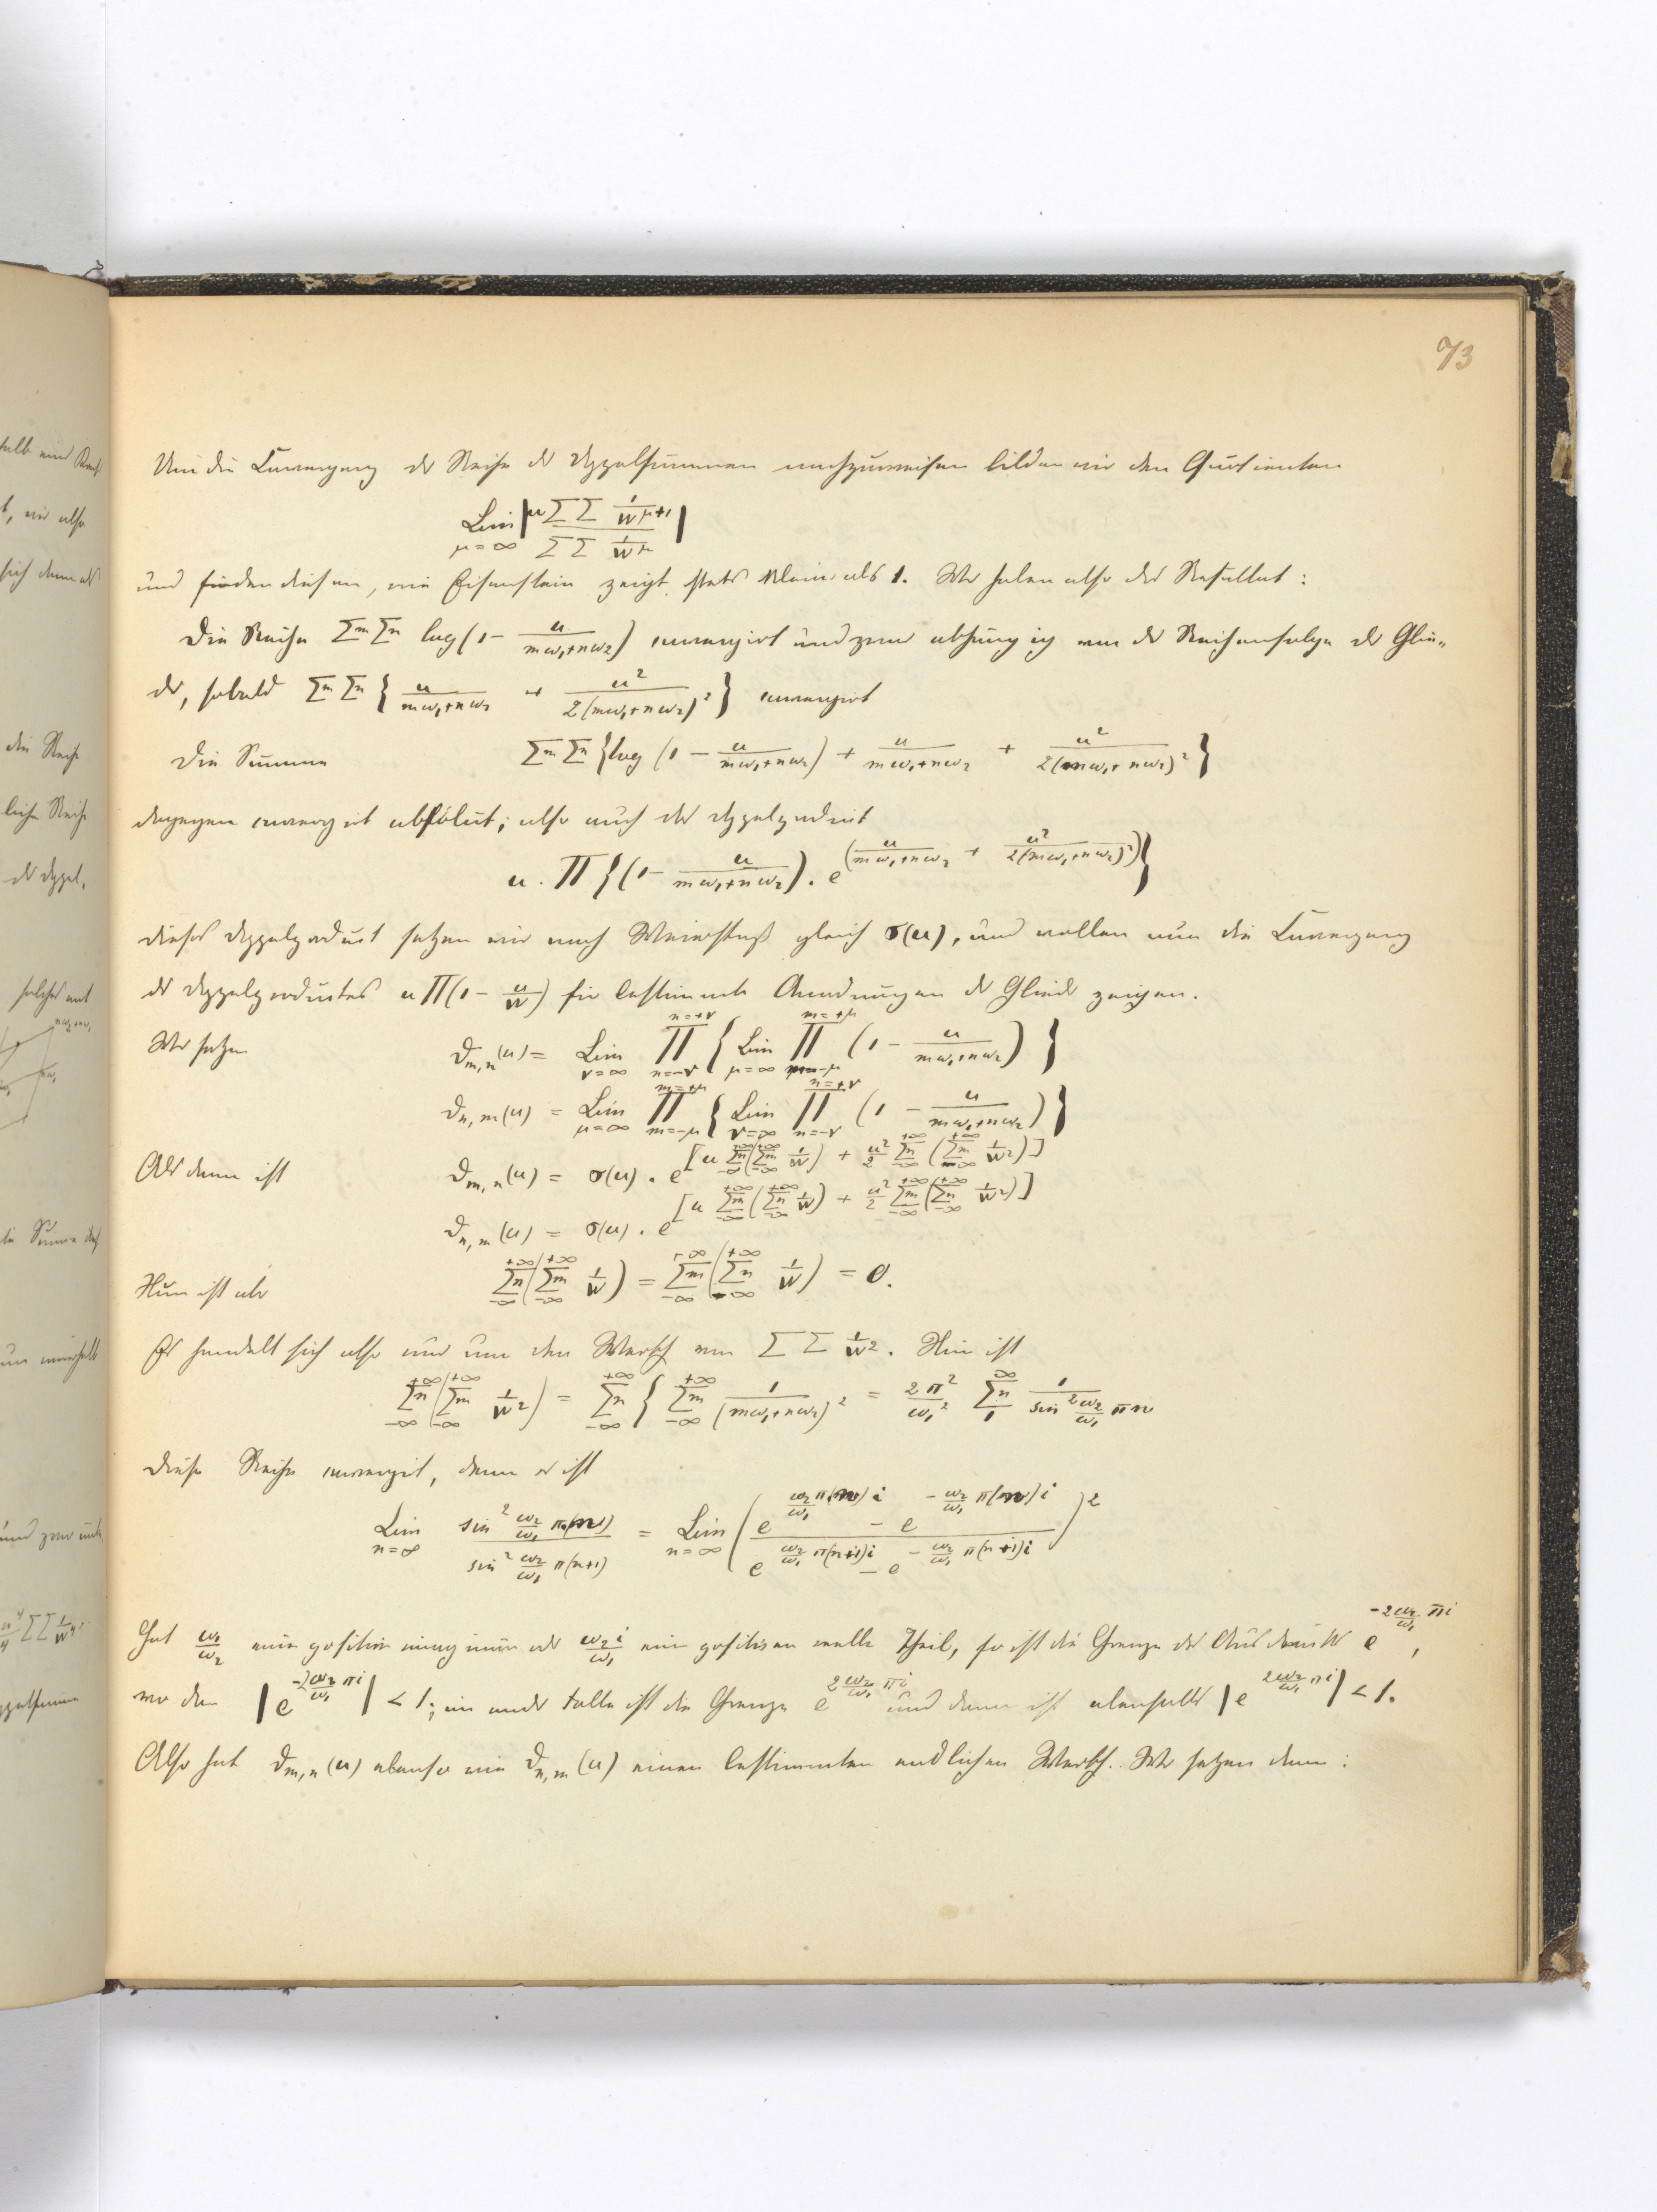 73
Um die Convergenz der Reihe der Doppelsummen nachzuweisen bilden wir den Quotienten
Lim_{μ=∞} | u ΣΣ 1/w^{μ+1} / ΣΣ 1/w^μ |
und finden diesen, wie Eisenstein zeigt, stets kleiner als 1. Wir haben also das Resultat:
Die Reihe Σm Σn log(1 - u/(mω₁+nω₂)) convergirt und zwar abhängig von der Reihenfolge der Glie-
der, sobald Σm Σn { u/(mω₁+nω₂) + u²/2(mω₁+nω₂)² } convergirt
Die Summe Σm Σn { log(1 - u/(mω₁+nω₂)) + u/(mω₁+nω₂) + u²/2(mω₁+nω₂)² }
dagegen convergirt absolut; also auch das Doppelproduct
u . Π { (1 - u/(mω₁+nω₂)) . e^{(u/(mω₁+nω₂) + u²/2(mω₁+nω₂)²)} }
dieses Doppelproduct setzen wir nach Weierstraß gleich σ(u), und wollen nun die Convergenz
des Doppelproductes u Π(1 - u/w) für bestimmte Anordnungen der Glieder zeigen.
Wir setzen ϑ_{m,n}(u) = Lim_{ν=∞} Π_{n=-ν}^{n=+ν} { Lim_{μ=∞} Π_{m=-μ}^{m=+μ} (1 - u/(mω₁+nω₂)) }
ϑ_{n,m}(u) = Lim_{μ=∞} Π_{m=-μ}^{m=+μ} { Lim_{ν=∞} Π_{n=-ν}^{n=+ν} (1 - u/(mω₁+nω₂)) }
Als dann ist ϑ_{m,n}(u) = σ(u) . e^{[u Σn_{-∞}^{+∞} (Σm_{-∞}^{+∞} 1/w) + u²/2 Σn_{-∞}^{+∞} (Σm_{-∞}^{+∞} 1/w²)]}
ϑ_{n,m}(u) = σ(u) . e^{[u Σm_{-∞}^{+∞} (Σn_{-∞}^{+∞} 1/w) + u²/2 Σm_{-∞}^{+∞} (Σn_{-∞}^{+∞} 1/w²)]}
Nun ist aber Σn_{-∞}^{+∞} (Σm_{-∞}^{+∞} 1/w) = Σm_{-∞}^{+∞} (Σn_{-∞}^{+∞} 1/w) = 0.
Es handelt sich also nur um den Werth von ΣΣ 1/w². Hier ist
Σn_{-∞}^{+∞} (Σm_{-∞}^{+∞} 1/w²) = Σn_{-∞}^{+∞} { Σm_{-∞}^{+∞} 1/(mω₁+nω₂)² = 2π²/ω₁² Σn_1^∞ 1/sin² ω₂/ω₁ πn
Diese Reihe convergirt, denn es ist
Lim_{n=∞} sin² ω₂/ω₁ π(n) / sin² ω₂/ω₁ π(n+1) = Lim_{n=∞} ( (e^{ω₂/ω₁ π(n)i} - e^{-ω₂/ω₁ π(n)i}) / (e^{ω₂/ω₁ π(n+1)i} - e^{-ω₂/ω₁ π(n+1)i}) )²
Hat ω₁/ω₂ einen positiv imaginären oder ω₂i/ω₁ einen positiven reellen Theil, so ist die Grenze des Ausdrucks e^{-2ω₂/ω₁ πi},
wo dann |e^{-2ω₂/ω₁ πi}| < 1; im andr Falle ist die Grenze e^{2ω₂/ω₁ πi} und dann ist ebenfalls |e^{2ω₂/ω₁ πi}| < 1.
Also hat ϑ_{m,n}(u) ebenso wie ϑ_{n,m}(u) einen bestimmten endlichen Werth. Wir setzen dann: